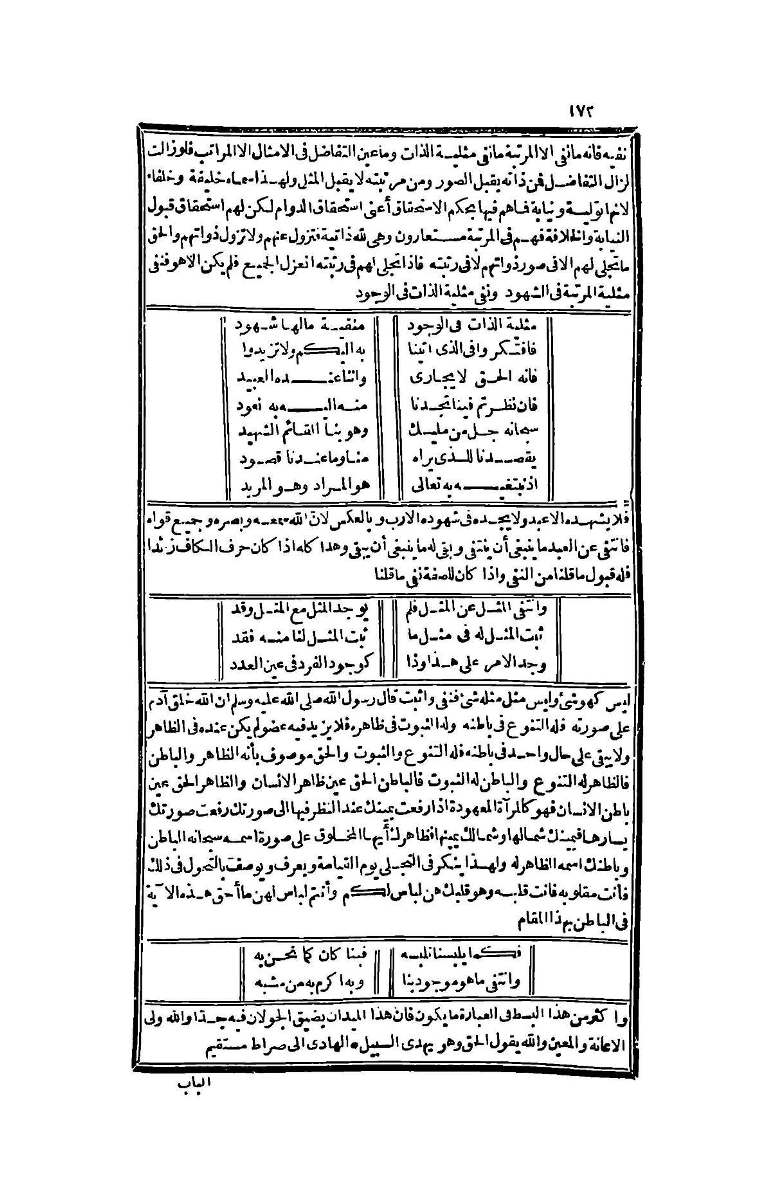 ١٧٢
نفيه فانه ما نفى الا المرتبة ما نفى مثلية الذات وما عين التفاضل فى الامثال الا المراتب فلو زالت
لزال التفاضل فمن ذاته يقبل الصور ومن مرتبته لا يقبل المثل ولهذا سماه خليفة وخلفاء
لانها تولية ونيابة فما هم فيها بحكم الاستحقاق أعنى استحقاق الدوام لكن لهم استحقاق قبول
النيابة والخلافة فهم فى المرتبة مستعارون وهى لله ذاتية فتزول عنهم ولا تزول ذواتهم والحق
ما تجلى لهم الا فى صور ذواتهم لا فى رتبته فاذا تجلى لهم فى رتبته انعزل الجميع فلم يكن الا هو فنفى
مثلية المرتبة فى الشهود ونفى مثلية الذات فى الوجود
مثلية الذات فى الوجود منفية ما لها شهود
فافتكروا فى الذى اتينا به اليكم ولا تزيدوا
فانه الحق لا يجارى واننا عنده العبيد
فان نظرتم فينا تجدنا منه اليه به نعود
سبحانه جل من مليك وهو بنا القائم الشهيد
يقصدنا للذى يراه منا وما عندنا قصود
اذ نبتغيه به تعالى هو المراد وهو المريد
فلا يشهده الا عبد ولا يجده فى شهوده الا رب وبالعكس لان الله سمعه وبصره وجميع قواه
فانتفى عن العبد ما ينبغى أن ينتفى وبقى له ما ينبغى أن يبقى وهذا كله اذا كان حرف الكاف زائدا
فله قبول ما قلنا من النفى واذا كان للصفة نفى ما قلنا
وانتفى المثل عن المثل فلم يوجد المثل مع المثل وقد
ثبت المثل له فى مثل ما ثبت المثل لنا منه فقد
وجد الامر على هذا وذا كوجود الفرد فى عين العدد
ليس كهو شئ وليس مثل مثله شئ فنفى واثبت قال رسول الله صلى الله عليه وسلم ان الله خلق آدم
على صورته فله التنوع فى باطنه وله الثبوت فى ظاهره فلا يزيد فيه عضو لم يكن عنده فى الظاهر
ولا يبقى على حال واحد فى باطنه فله التنوع والثبوت والحق موصوف بأنه الظاهر والباطن
فالظاهر له التنوع والباطن له الثبوت فالباطن الحق عين ظاهر الانسان والظاهر الحق عين
باطن الانسان فهو كالمرآة المعهودة اذا رفعت يمينك عند النظر فيها الى صورتك رفعت صورتك
يسارها فيمينك شمالها وشمالك يمينها فظاهرك أيها المخلوق على صورة اسمه سبحانه الباطن
وباطنك اسمه الظاهر له ولهذا ينكر فى التجلى يوم القيامة ويعرف ويوصف بالتحول فى ذلك
فأنت مقلوبه فانت قلبه وهو قلبك هن لباس لكم وأنتم لباس لهن ما أحق هذه الآية
فى الباطن بهذا المقام
فكما يلبسنا نلبسه فبنا كان كما نحن به
وانتفى ما هو موجود بنا وبه اكرم به من مشبه
واكثر من هذا البسط فى العبارة ما يكون فان هذا الميدان يضيق الجولان فيه جدا والله ولى
الاعانة والمعين والله يقول الحق وهو يهدى السبيل الهادى الى صراط مستقيم
الباب